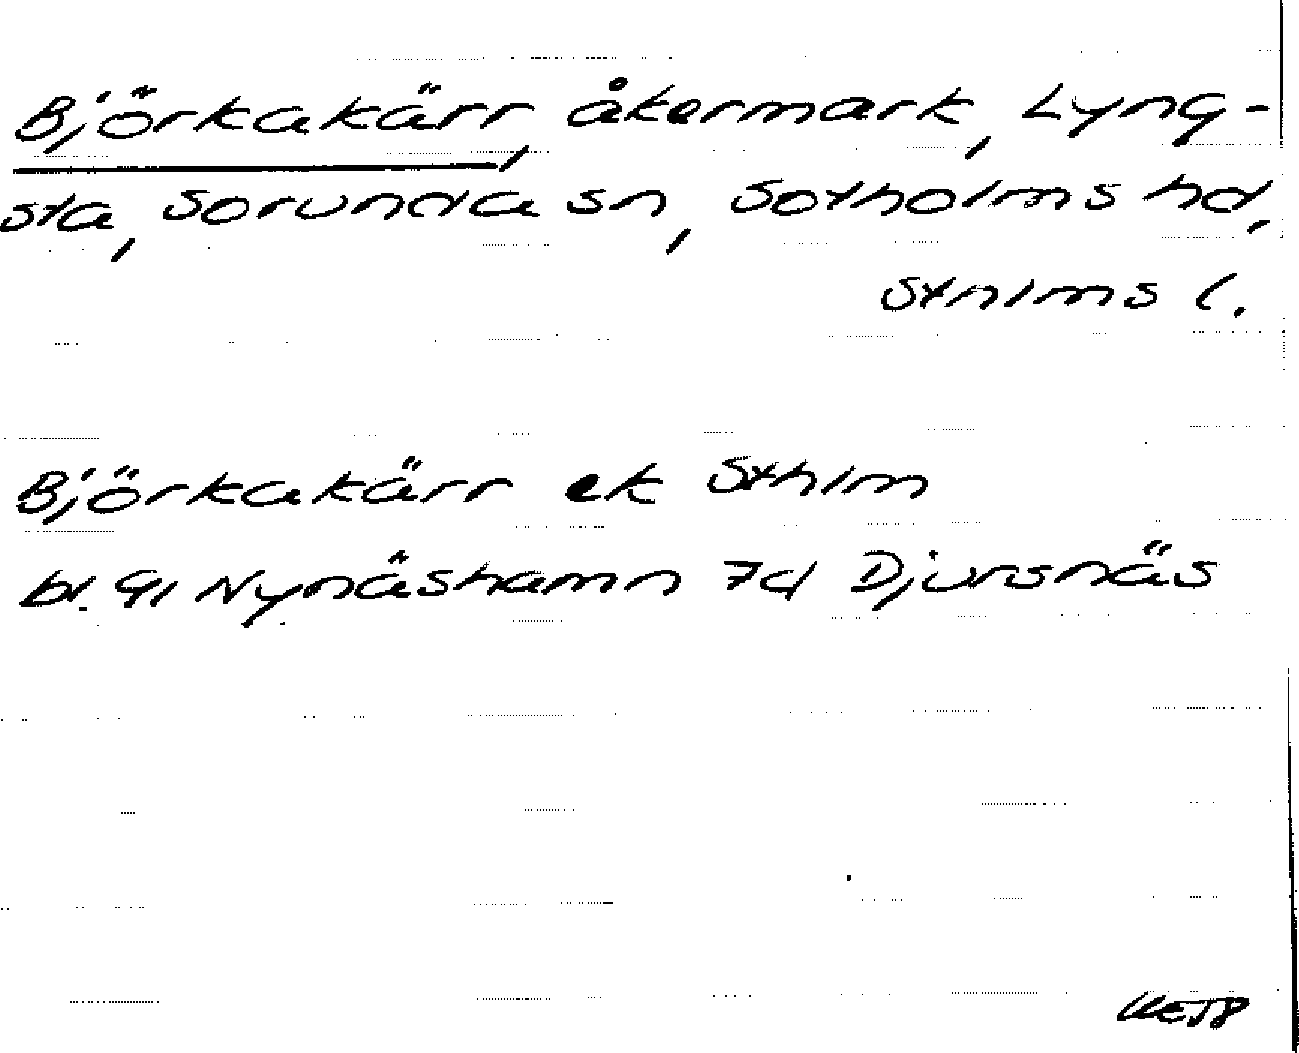 Björkakärr, åkermark, Lyng-
sta, Sorunda sn, Sotholms hd,
Sthlms l.
Björkakärr ek Sthlm
bl. 91 Nynäshamn 7d Djursnäs